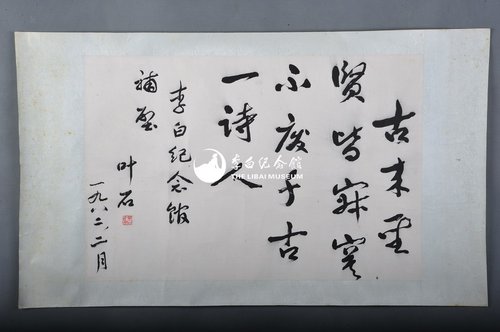 古来圣
贤皆寂寞
不废千古
一诗人
李白纪念馆
补壁
叶石
一九八二、二月
李白纪念馆
THE LIBAI MUSEUM